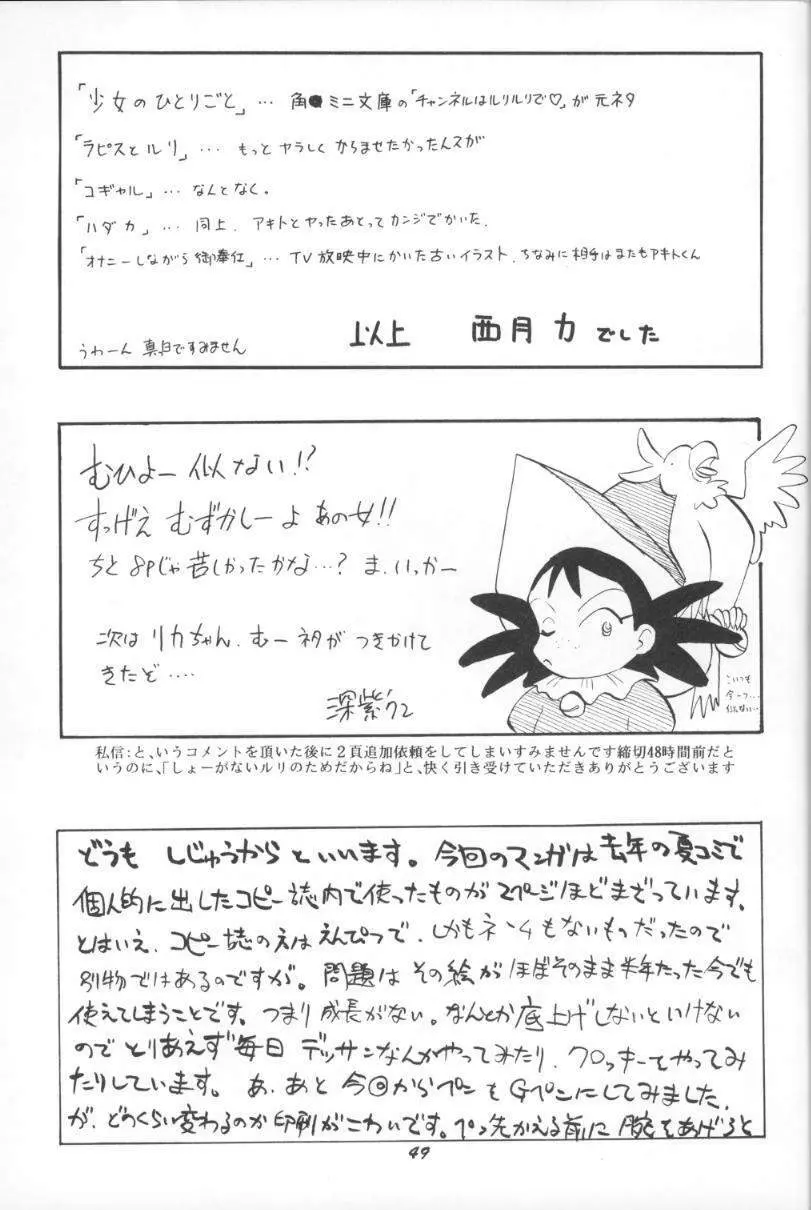 「少女のひとりごと」… 角●ミニ文庫の「チャンネルはルリルリで♡」が元ネタ
「ラピスとルリ」… もっとヤラしくからませたかったんスが
「コギャル」… なんとなく。
「ハダカ」… 同上、アキトとヤったあとってカンジでかいた.
「オナニーしながら御奉仕」… TV放映中にかいた古いイラスト.ちなみに相手はまたもアキトくん
以上 西月力でした
うわーん 真白ですみません
むひよー 似ない!?
すっげえ むずかしーよ あの女!!
ちと8Pじゃ苦しかったかな…? ま、いっかー
次は リカちゃん、むー ネタが つきかけて
きたぞ ‥‥
深紫ウニ
こいつも
今一つ…
似ない…
私信:と、いうコメントを頂いた後に2頁追加依頼をしてしまいすみませんです締切48時間前だと
いうのに、「しょーがないルリのためだからね」と、快く引き受けていただきありがとうございます
どうも しじゅうから といいます。今回のマンガは去年の夏コミで
個人的に出したコピー誌内で使ったものが2ページほどまざっています。
とはいえ、コピー誌のえはえんぴつで、しかもネームもないものだったので
別物ではあるのですが。問題は その絵が ほぼそのまま半年たった今でも
使えてしまうことです。つまり成長がない。なんとか底上げしないといけない
ので とりあえず毎日 デッサンなんかやってみたり、クロッキーをやってみ
たりしています。 あ、あと 今回からペンも Gペンにしてみました
が、どのくらい変わるのか印刷がこわいです。ペン先かえる前に 腕をあげろと
49